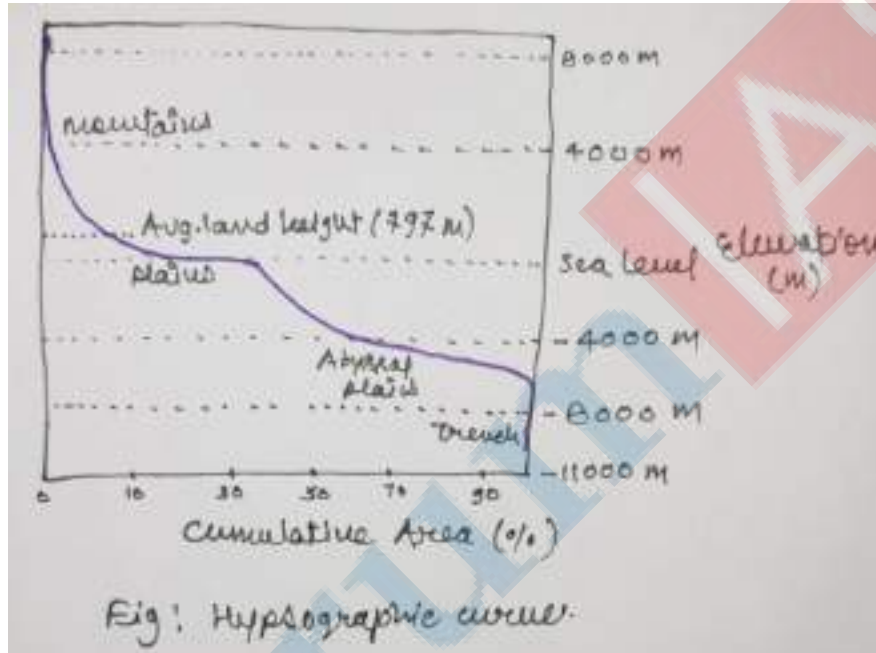 8000 m
mountains
4000 m
Avg. land height (797 m)
Sea level
Elevation
(m)
plains
-4000 m
Abyssal
plain
-8000 m
Trench
-11000 m
0 10 30 50 70 90
Cumulative Area (%)
Fig: Hypsographic curve.